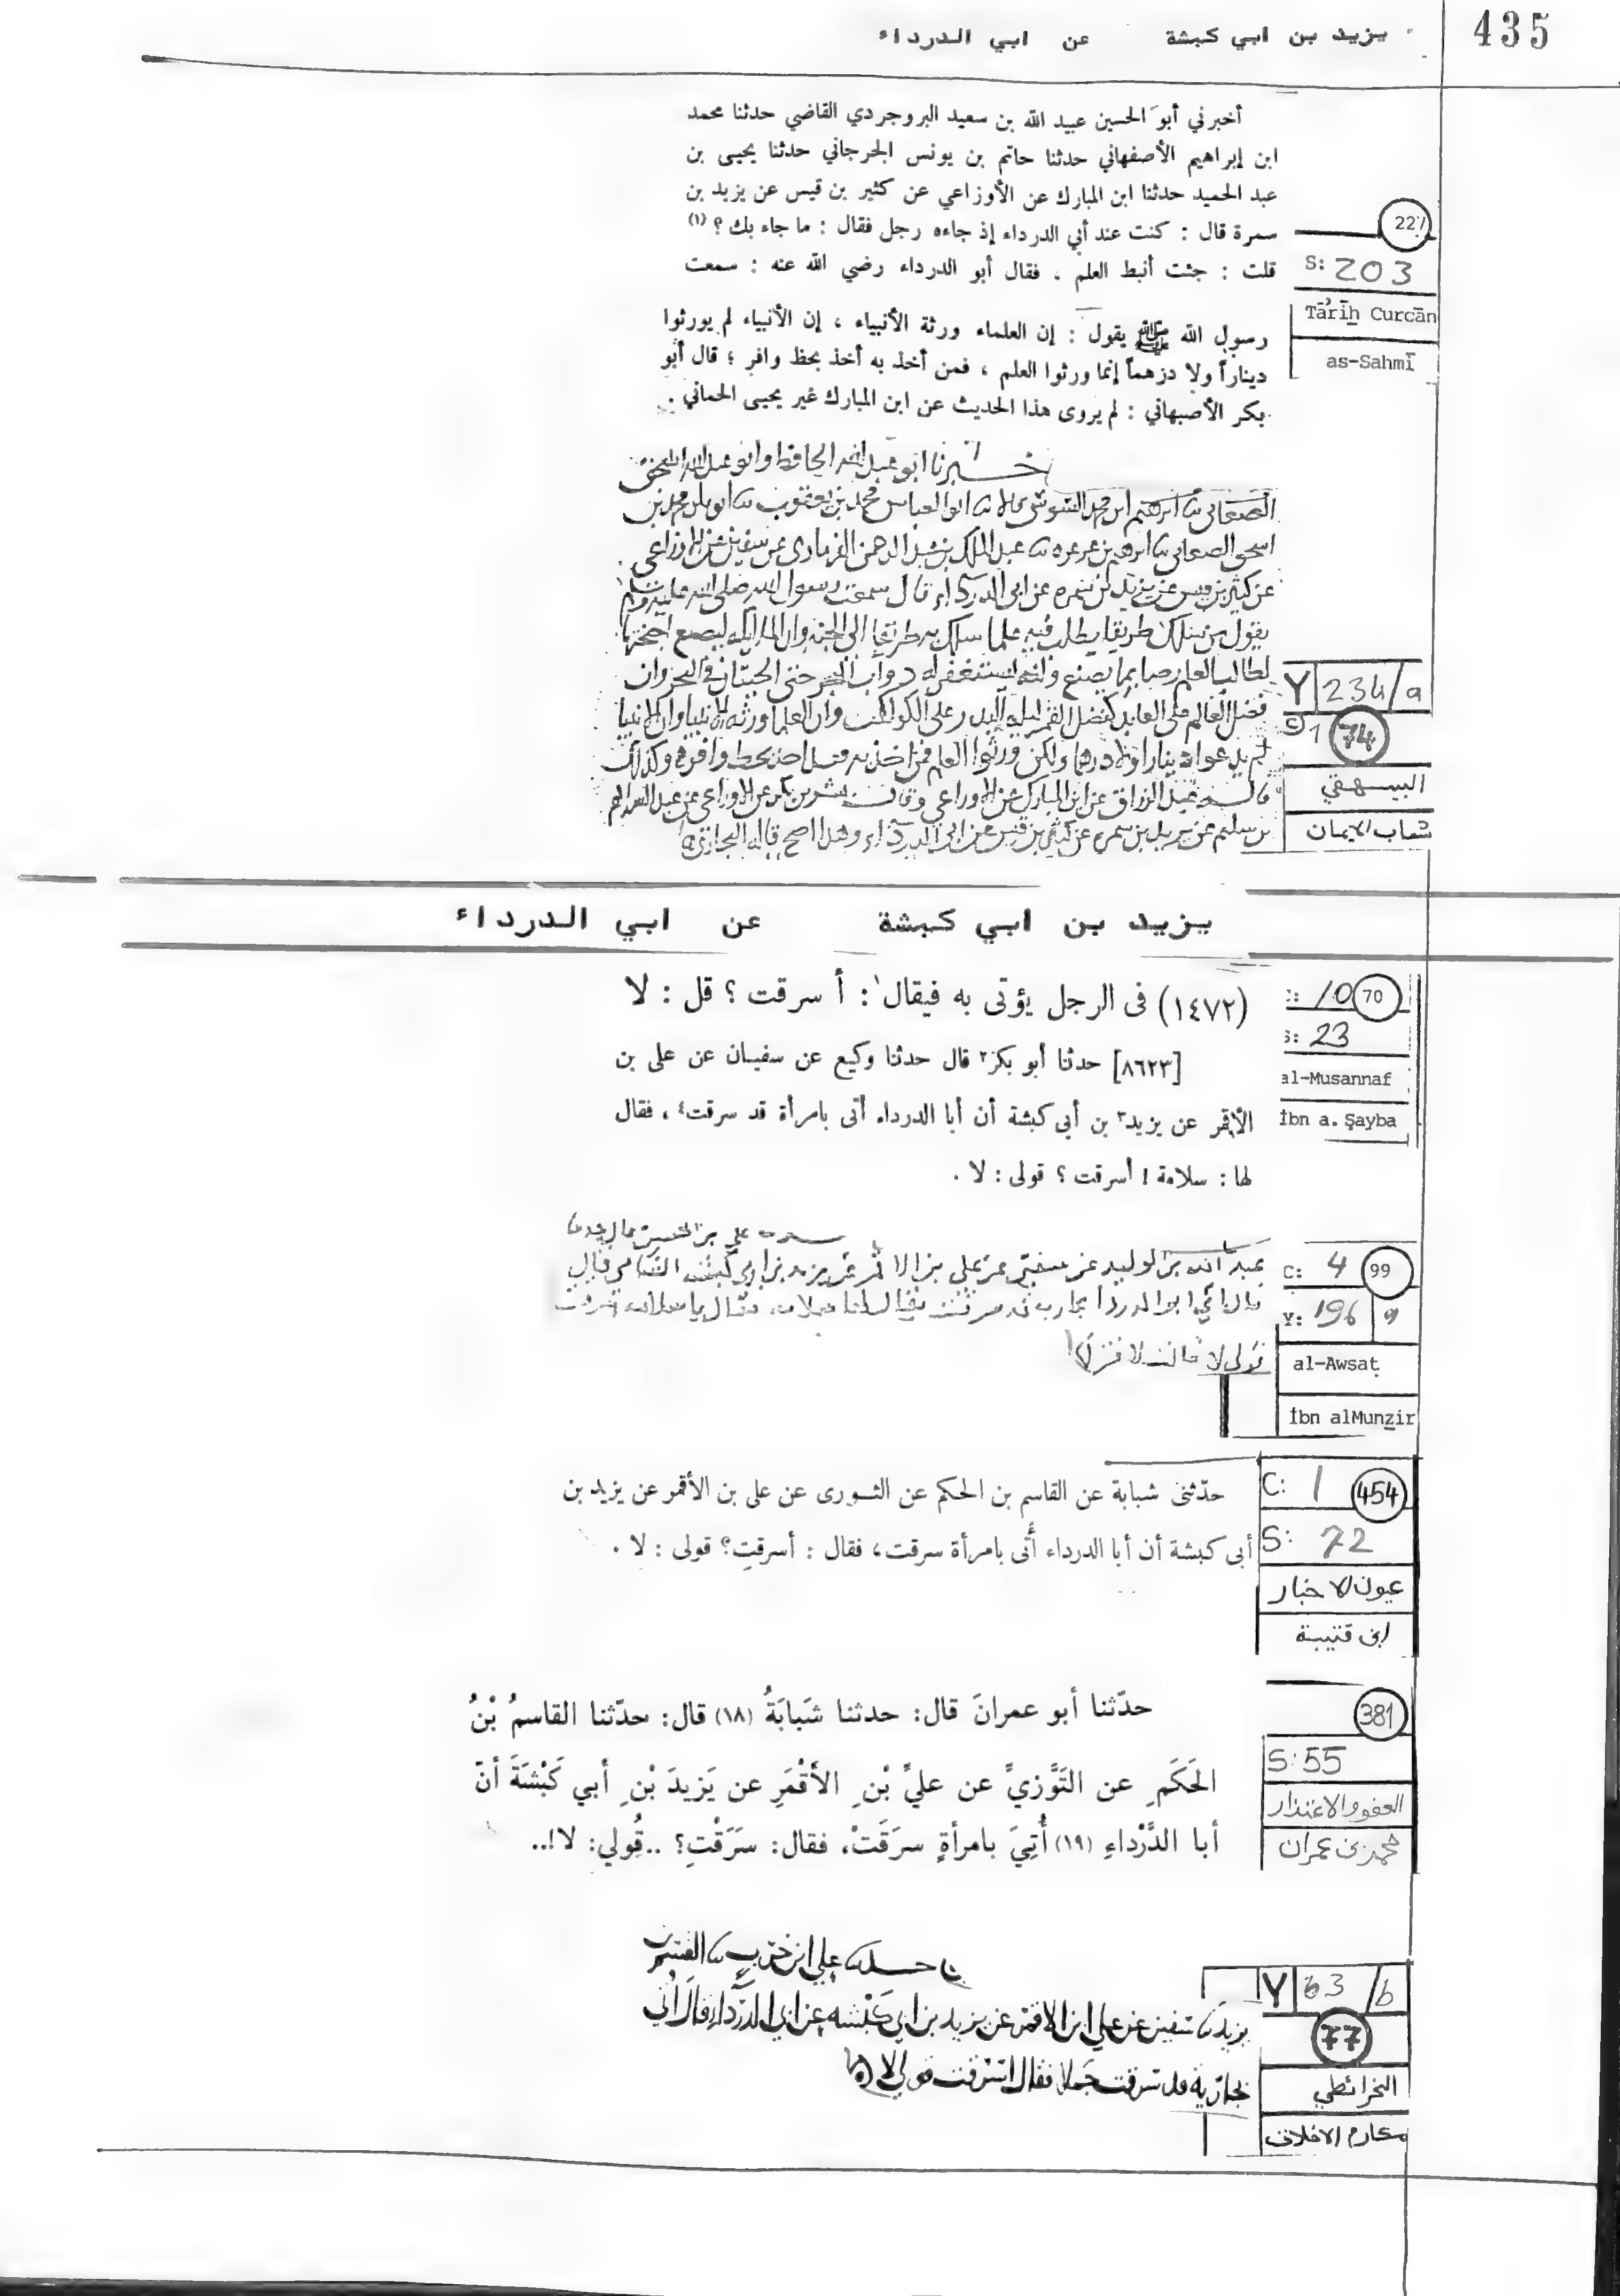 يزيد بن ابي كبشة عن ابي الدرداء
435
أخبرني أبو الحسين عبيد الله بن سعيد البروجردي القاضي حدثنا محمد
ابن إبراهيم الأصفهاني حدثنا حاتم بن يونس الجرجاني حدثنا يحيى بن
عبد الحميد حدثنا ابن المبارك عن الأوزاعي عن كثير بن قيس عن يزيد بن
سمرة قال : كنت عند أبي الدرداء إذ جاءه رجل فقال : ما جاء بك ؟ (١)
قلت : جئت أنبط العلم . فقال أبو الدرداء رضي الله عنه : سمعت
رسول الله ﷺ يقول : إن العلماء ورثة الأنبياء ، إن الأنبياء لم يورثوا
ديناراً ولا درهماً إنما ورثوا العلم ، فمن أخذ به أخذ بحظ وافر ؛ قال أبو
بكر الأصبهاني : لم يروى هذا الحديث عن ابن المبارك غير يحيى الحماني .
227
S: 203
Tārīḫ Curcān
as-Sahmī
اخبرنا ابو عبد الله الحافظ وابو عبد الله اسحق
ابرهيم ابن محمد السوسي ابو العباس محمد بن يعقوب ابو بكر محمد بن
اسحق الصغاني ابرهيم بن عرعره عبد الملك بن عبد الرحمن الذماري عن سفين عن الاوزاعي
عن كثير بن قيس عن يزيد بن سمره عن ابي الدرداء قال سمعت رسول الله صلى الله عليه وسلم
يقول من سلك طريقا يطلب فيه علما سلك به طريقا الى الجنه وان الملائكه لتضع اجنحتها
لطالب العلم رضا بما يصنع وانه ليستغفر له دواب البحر حتى الحيتان في البحر وان
فضل العالم على العابد كفضل القمر ليله البدر على الكواكب وان العلما ورثه الانبيا وان الانبيا
لم يدعوا دينارا ولا درهما ولكن ورثوا العلم فمن اخذ به فقد اخذ بحظ وافر وكذلك
قاله عبد الرزاق عن ابن المبارك عن الاوزاعي وقال بشر بن بكر عن الاوزاعي عن عبد السلام
بن سليم عن يزيد بن سمره عن كثير بن قيس عن ابي الدرداء وهذا اصح قاله البخاري
Y 234/a
C 1 74
البيهقي
شعاب الايمان
يزيد بن ابي كبشة عن ابي الدرداء
(١٤٧٢) فى الرجل يؤتى به فيقال١ : أ سرقت ؟ قل : لا
[٨٦٢٣] حدثنا أبو بكر٢ قال حدثنا وكيع عن سفيان عن على بن
الأقمر عن يزيد٣ بن أبي كبشة أن أبا الدرداء أتى بامرأة قد سرقت٤ ، فقال
لها : سلامة ! أسرقت ؟ قولى : لا .
C: 10 70
S: 23
al-Musannaf
İbn a. Şayba
علي بن الحسن قال حدثنا
عبد الله بن الوليد عن سفين عن علي بن الاقمر عن يزيد بن ابي كبشه قال
اتي ابو الدردا بجاريه قد سرقت يقال لها سلامه فقال يا سلامه اسرقت
قولي لا قالت لا فتركها
C: 4 99
Y: 196 a
al-Awsaṭ
İbn alMunẕir
حدّثنى شبابة عن القاسم بن الحكم عن الثورى عن على بن الأقمر عن يزيد بن
أبى كبشة أن أبا الدرداء أُتى بامرأة سرقت، فقال : أسرقتِ؟ قولى : لا .
C: 1 454
S: 72
عيون الاخبار
ابن قتيبة
حدّثنا أبو عمرانَ قال: حدثنا شَبابَةُ (١٨) قال: حدّثنا القاسمُ بْنُ
الحَكَمِ عن التَوَّزيِّ عن عليِّ بْنِ الأَقْمَرِ عن يَزيدَ بْنِ أبي كَبْشَةَ أنّ
أبا الدَّرْداءِ (١٩) أُتِيَ بامرأةٍ سرَقَتْ، فقال: سَرَقْتِ؟ ..قُولي: لا!..
381
S: 55
العفو والاعتذار
محمد بن عمران
علي ابن حرب القسم بن
يزيد سفين عن علي ابن الاقمر عن يزيد بن ابي كبشه عن ابي الدرداء قال اتي
بجاريه قد سرقت جملا فقال اسرقت قولي لا
Y 63 /b
77
الخرائطي
مكارم الاخلاق